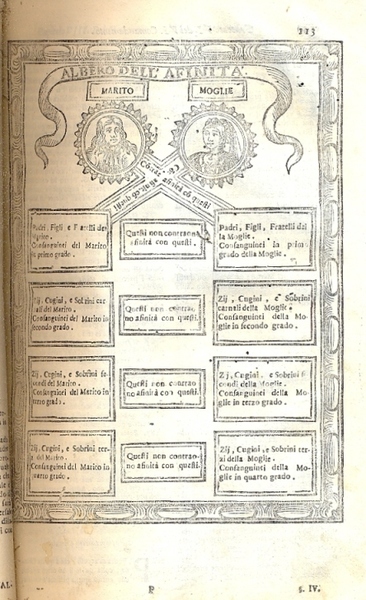 113
ALBERO DELL' AFINITÀ.
MARITO
MOGLIE
Cōtrae afinità cō questi
Cōtrae afinità cō questi
Padri, Figli e Fratelli del
Marito.
Consanguinei del Marito
in primo grado.
Questi non contraono
afinità con questi.
Padri, Figli, Fratelli del
la Moglie.
Consanguinei in primo
grado della Moglie.
Zij, Cugini, e Sobrini car
nali del Marito.
Consanguinei del Marito in
secondo grado.
Questi non contrao-
no afinità con questi.
Zij, Cugini, e Sobrini
carnali della Moglie.
Consanguinei della Mo-
glie in secondo grado.
Zij, Cugini, e Sobrini se
condi del Marito.
Consanguinei del Marito in
terzo grado.
Questi non contrao-
no afinità con questi.
Zij, Cugini, e Sobrini se
condi della Moglie.
Consanguinei della Mo-
glie in terzo grado.
Zij, Cugini, e Sobrini ter
zi del Marito.
Consanguinei del Marito in
quarto grado.
Questi non contrao-
no afinità con questi.
Zij, Cugini, e Sobrini ter
zi della Moglie.
Consanguinei della Mo-
glie in quarto grado.
AL-
P
§. IV.